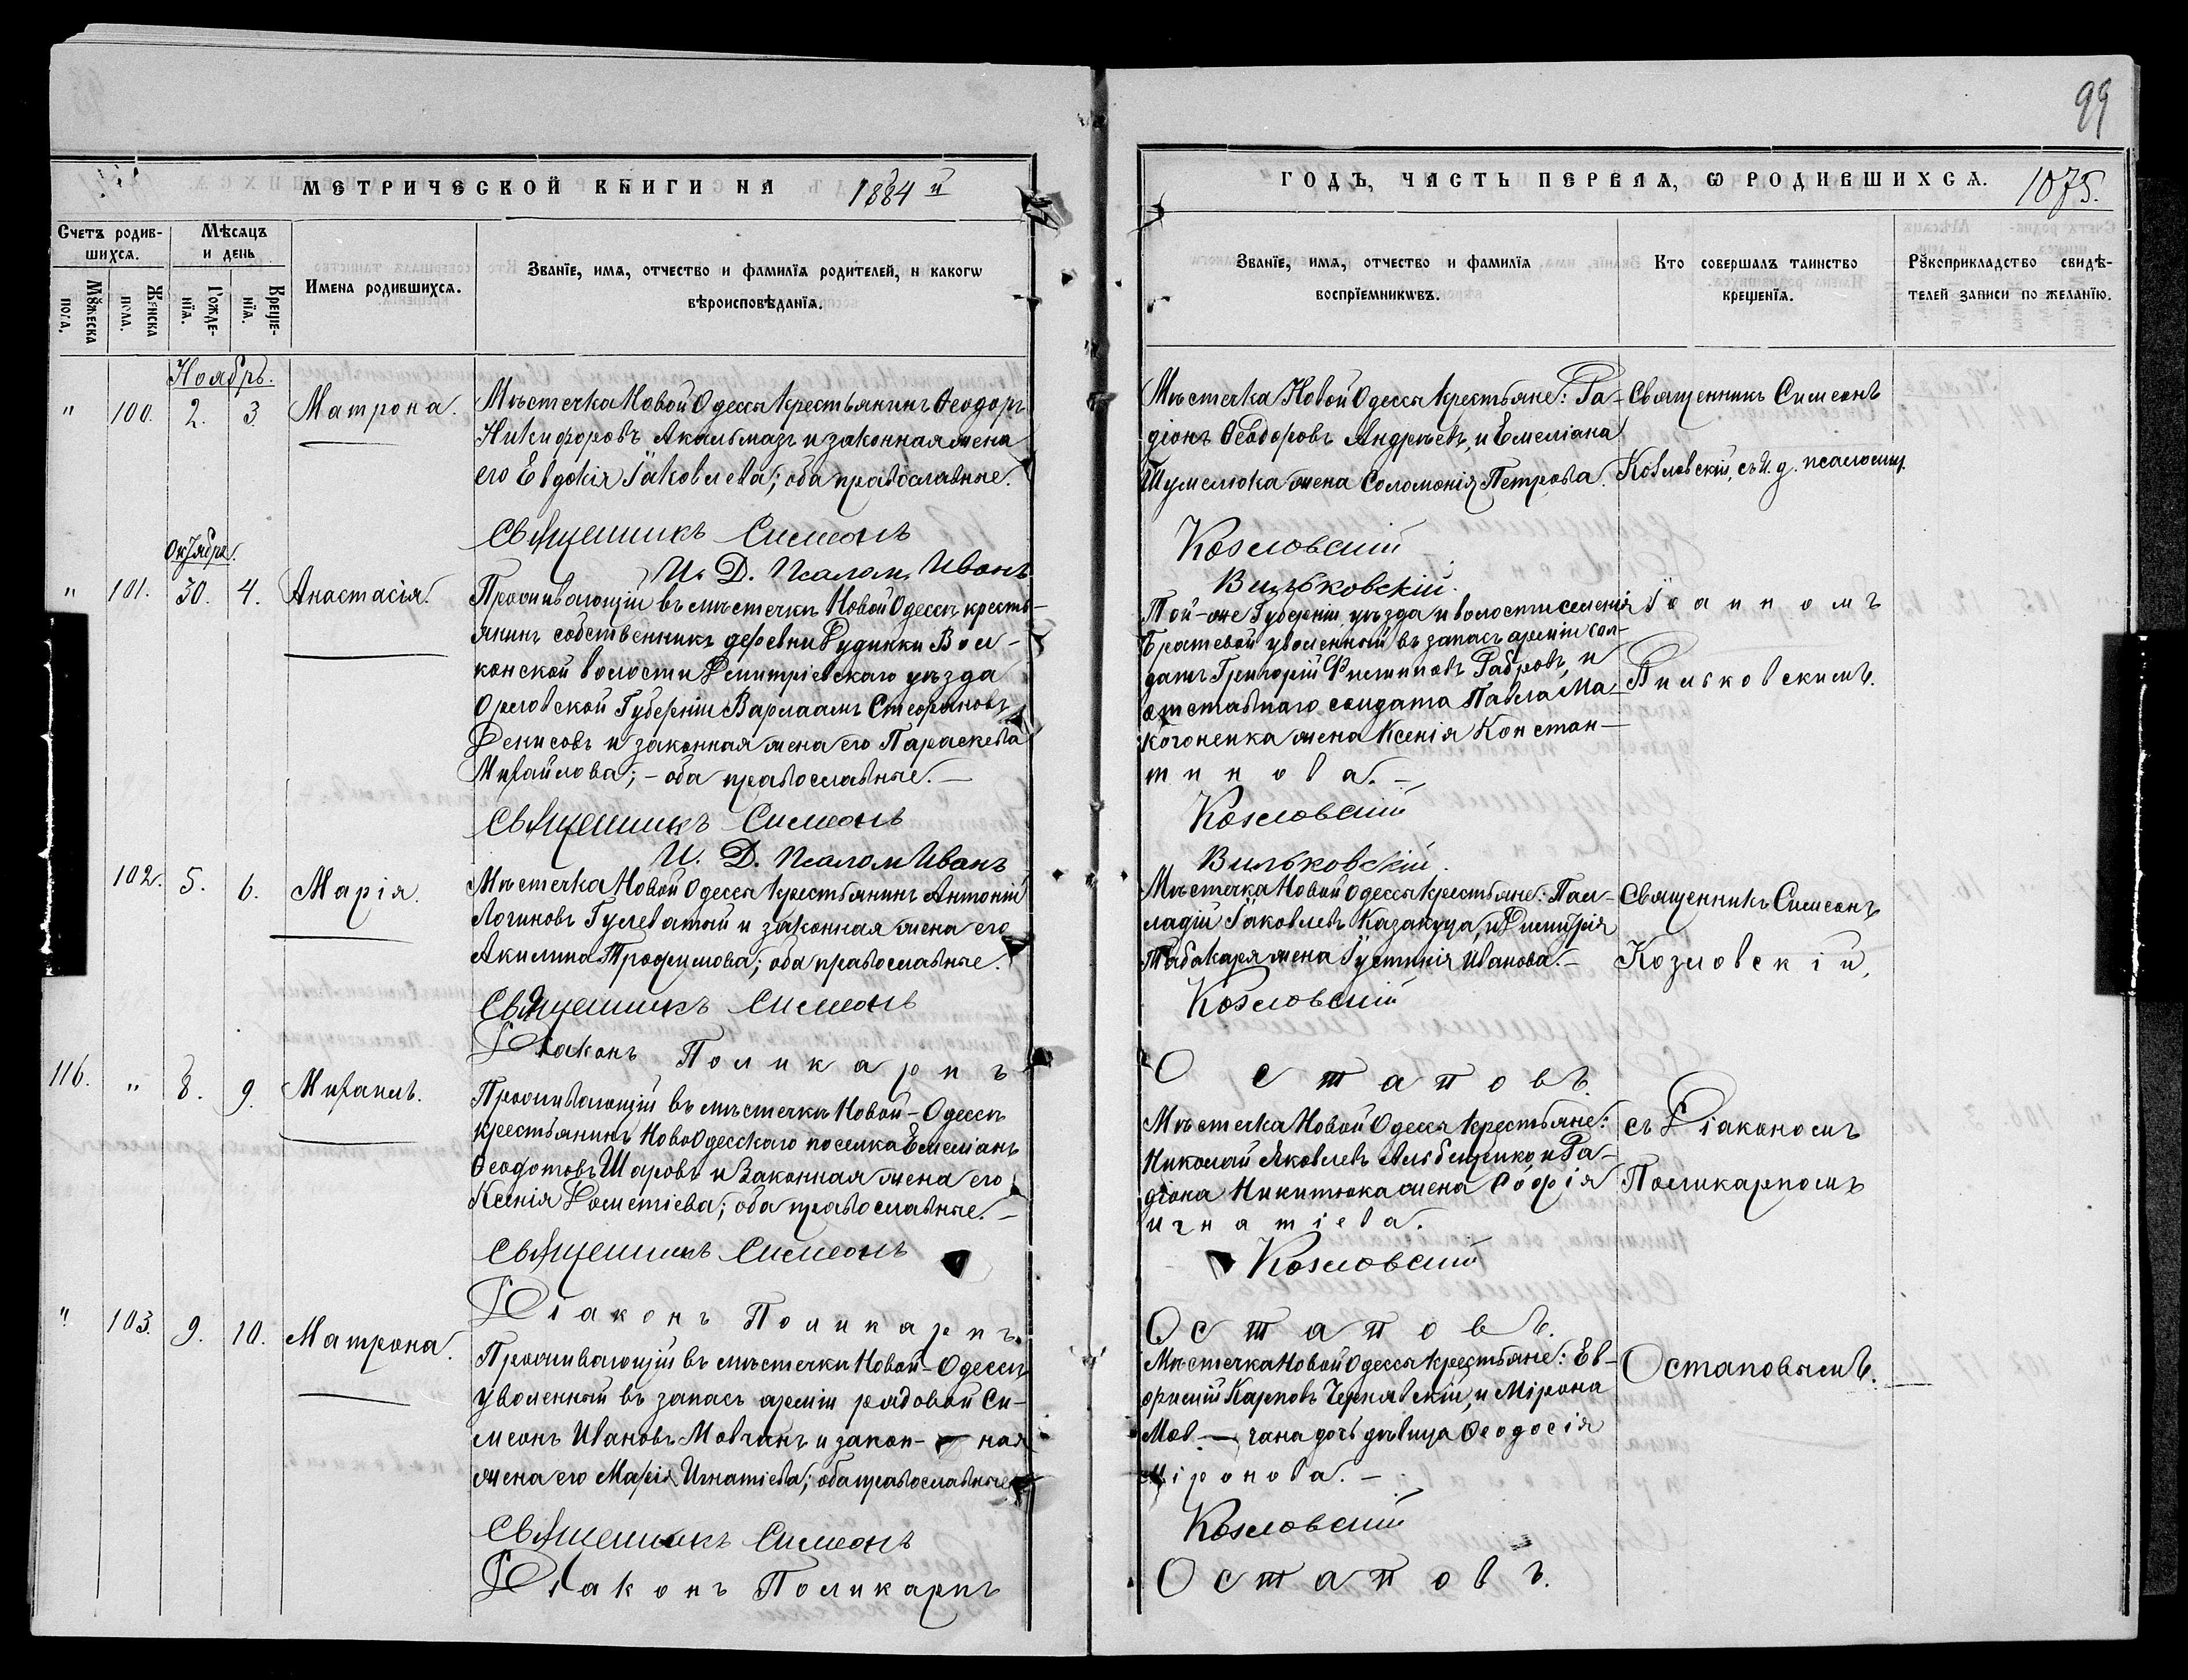 99
МЕТРИЧЕСКОЙ КНИГИ НА 1884 й
ГОДЪ, ЧАСТЬ ПЕРВАЯ, Ѡ РОДИВШИХСѦ. 1075.
Счетъ родив-
шихсѧ.
Мѣсѧцъ
и день
Мꙋжеска
пола.
Женска
пола.
Рожде-
нїѧ.
Креще-
нїѧ.
Имена родившихсѧ.
Званїе, имѧ, отчество и фамилїѧ родителей, и какогѡ
вѣроисповѣданїѧ.
Званїе, имѧ, отчество и фамилїѧ
воспрїемникѡвъ.
Кто совершалъ таинство
крещенїѧ.
Рꙋкоприкладство свидѣ-
телей записи по желанїю.
Ноябрь.
" 100. 2. 3. Матрона.
Мѣстечка Новой Одессы крестьянинъ Ѳеодоръ
Никифоровъ Акальмазъ и законная жена
его Евдокія Іаковлева; оба православные.
Священникъ Симеонъ
И. Д. Псалом. Иванъ
Мѣстечка Новой Одессы крестьяне: Ра-
діонъ Ѳеодоровъ Андреевъ, и Емеліана
Шумелюка жена Соломонія Петрова.
Козловскій
Вильковскій.
Священникъ Симеонъ
Козловскій, съ И. д. псаломщ.
Октября.
" 101. 30. 4. Анастасія.
Проживающій въ мѣстечкѣ Новой Одессѣ, кресть-
янинъ собственникъ деревни Рудинки Вол-
конской волости Дмитріевскаго уѣзда
Орловской Губерніи Варлаамъ Стефановъ
Денисовъ и законная жена его Параскева
Михайлова; - оба православные. -
Священникъ Симеонъ
И. Д. Псалом Иванъ
Той-же Губерніи уѣзда и волости селенія
уволенный въ запасъ арміи сол-
датъ Григорій Филиповъ и
отставнаго солдата Павла Ма-
когоненка жена Ксенія Констан-
тинова. -
Козловскій
Вильковскій.
Іоанномъ
Вильковскимъ.
102. 5. 6. Марія.
Мѣстечка Новой Одессы крестьянинъ Антоній
Логиновъ Гулеватый и законная жена его
Акилина Трофимова; оба православные.
Священникъ Симеонъ
Діаконъ Поликарпъ
Мѣстечка Новой Одессы крестьяне: Пал-
ладій Іаковлевъ Казакуца, и Димитрія
Табакаря жена Іустинія Иванова. -
Козловскій
Остаповъ.
Священникъ Симеонъ
Козловскій,
116. " 8. 9. Михаилъ.
Проживающій въ мѣстечкѣ Новой-Одессѣ
крестьянинъ НовоОдесскаго поселка Емеліанъ
Ѳеодотовъ Шаровъ и Законная жена его
Ксенія Дометіева; оба православные. -
Священникъ Симеонъ
Діаконъ Поликарпъ
Мѣстечка Новой Одессы крестьяне:
Николай Яковлевъ и Ра-
діона Никитюка жена Софія
Игнатіева.
Козловскій
Остаповъ.
съ Діакономъ
Поликарпомъ
" 103. 9. 10. Матрона.
Проживающій въ мѣстечкѣ Новой-Одессѣ
уволенный въ запасъ арміи рядовой Си-
меонъ Ивановъ Мовчанъ и закон- ная
жена его Марія Игнатіева; оба православные
Священникъ Симеонъ
Діаконъ Поликарпъ
Мѣстечка Новой Одессы крестьяне: Ев-
фимій Карповъ Чернявскій, и Мірона
Мов- чана дочь дѣвица Ѳеодосія
Міронова. -
Козловскій
Остаповъ.
Остаповымъ.